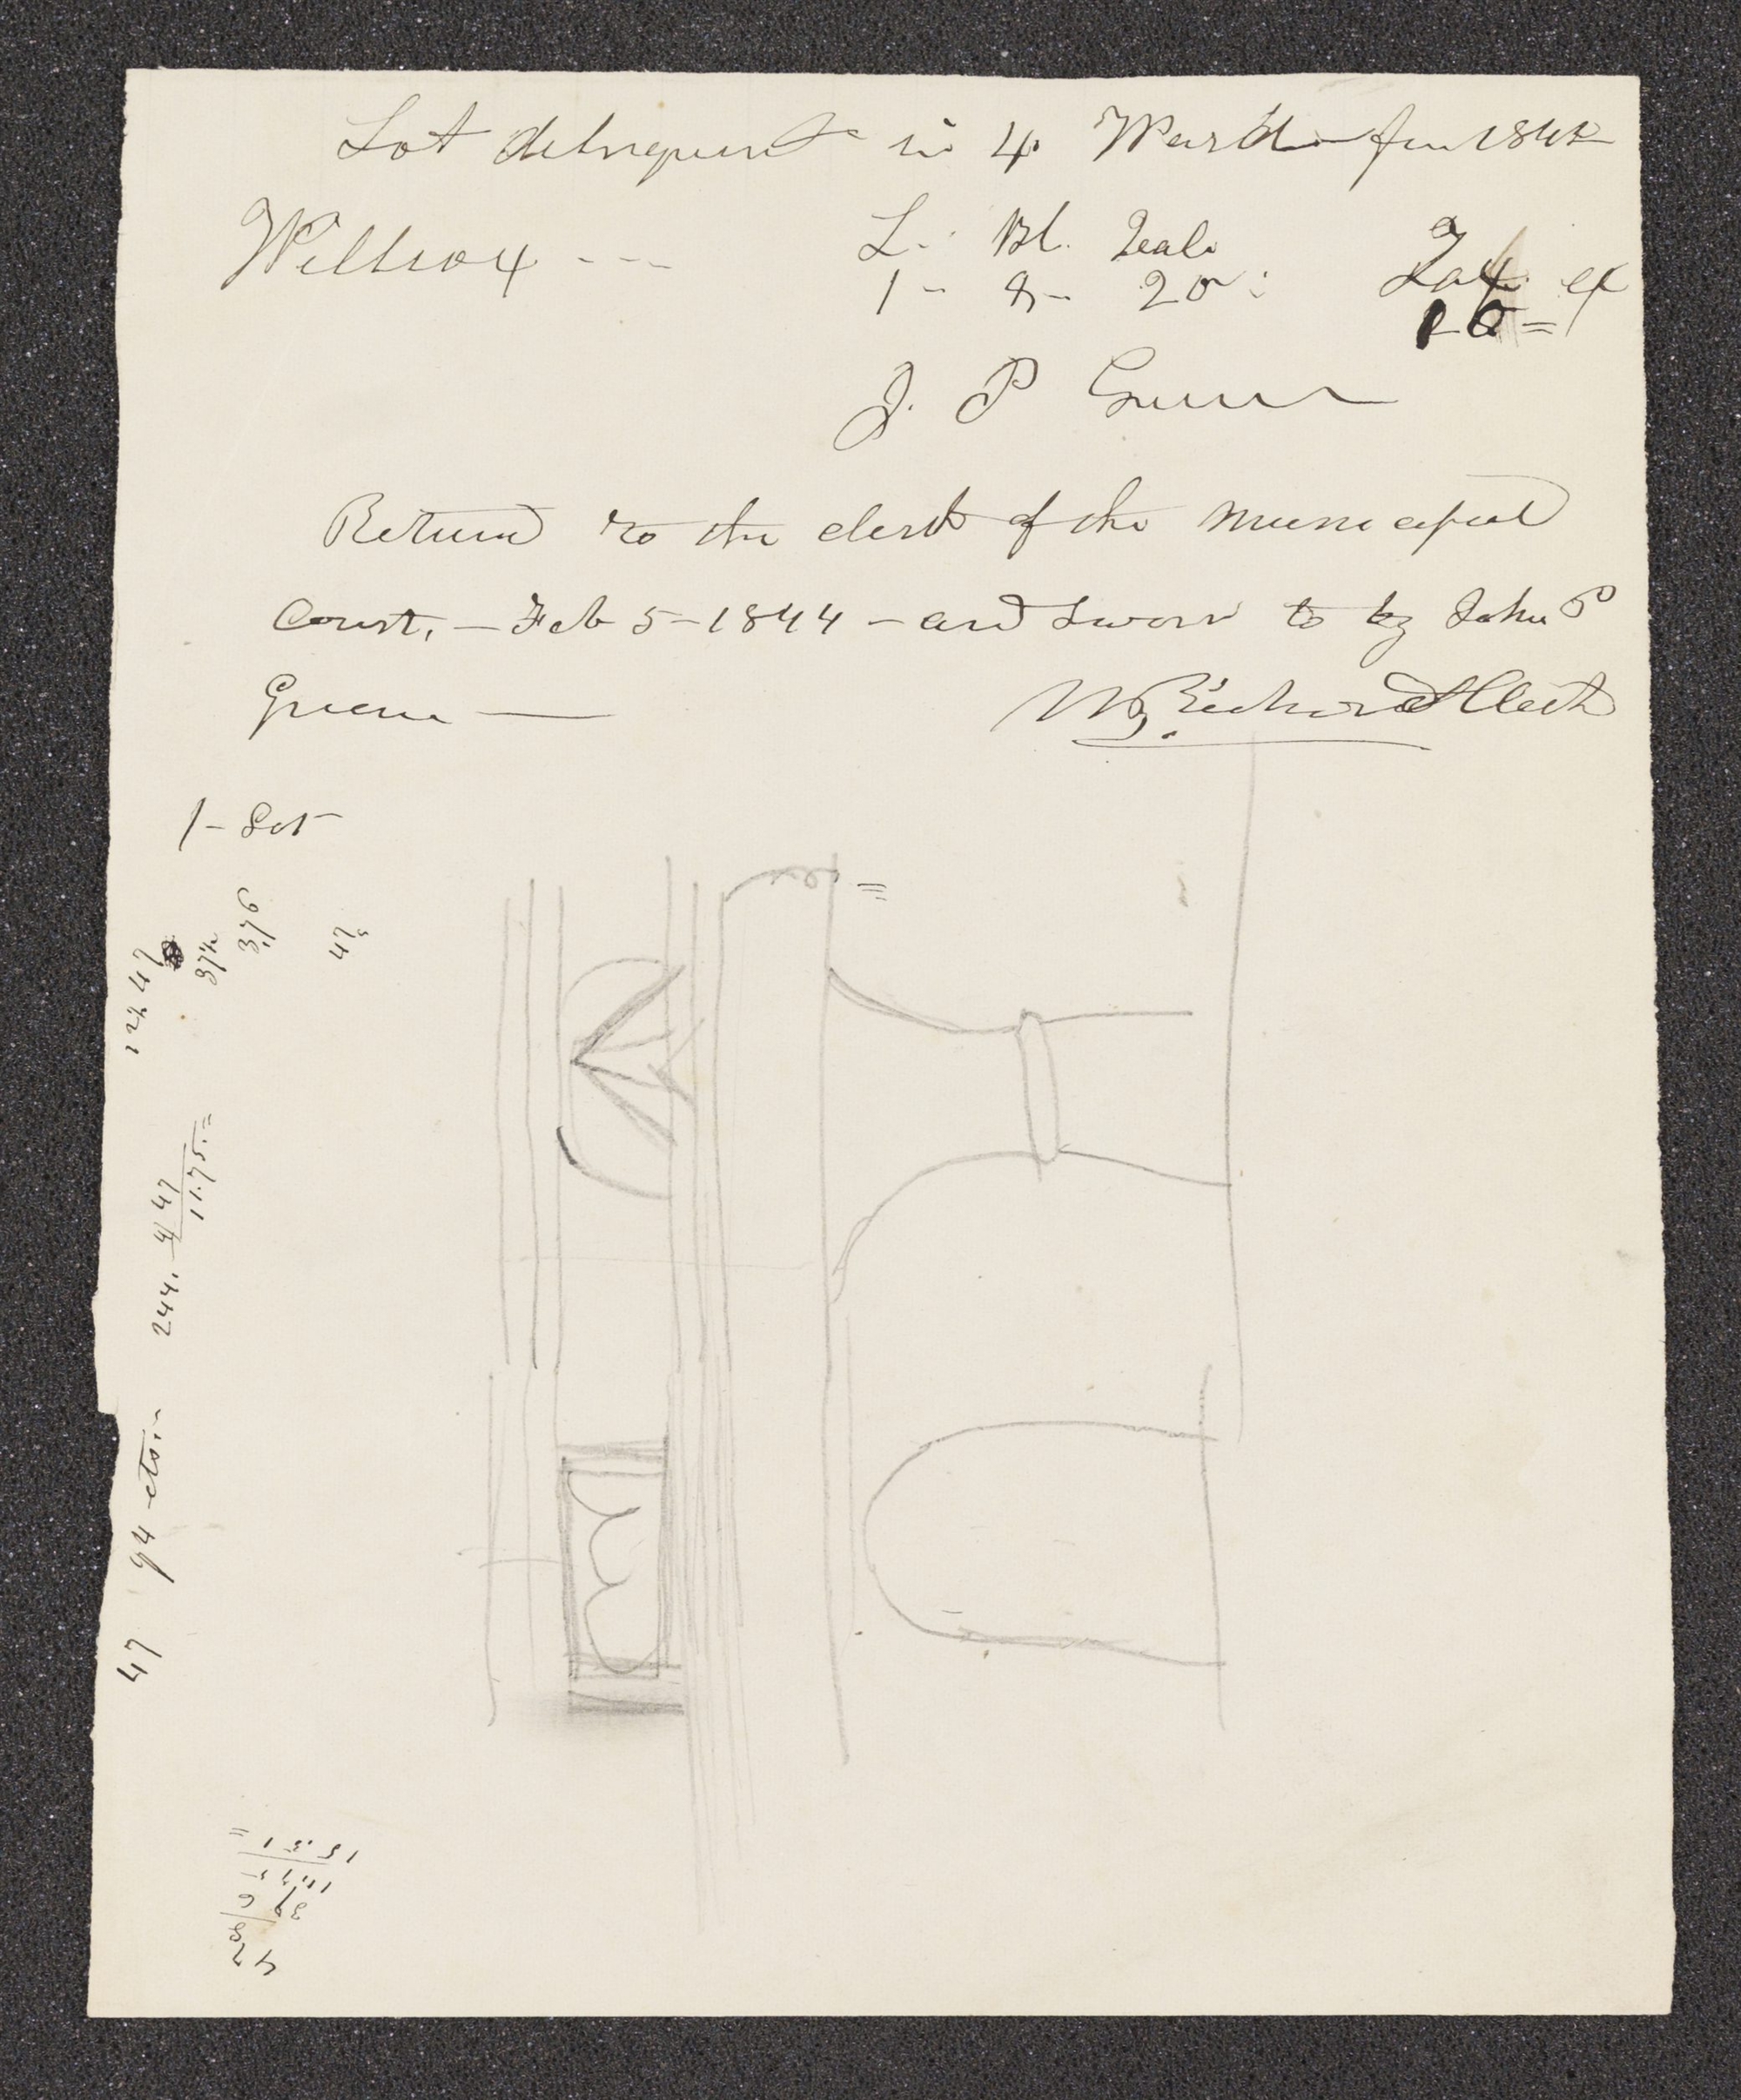 Lot delinquent in 4 Ward for 1842
Willcox --- L. Bl. Veal. Tax ct
1 - 8 - 20 : 10 =
J. P Greene
Returnd to the clerk of the Municipal
Court, - Feb 5 - 1844 - and sworn to by John P
Greene — W Richards Clerk
1 - Lot
12½ 47
37½
3,76
47
244. 47
11.75. =
47 94 cts. -
11.75
15.51 =